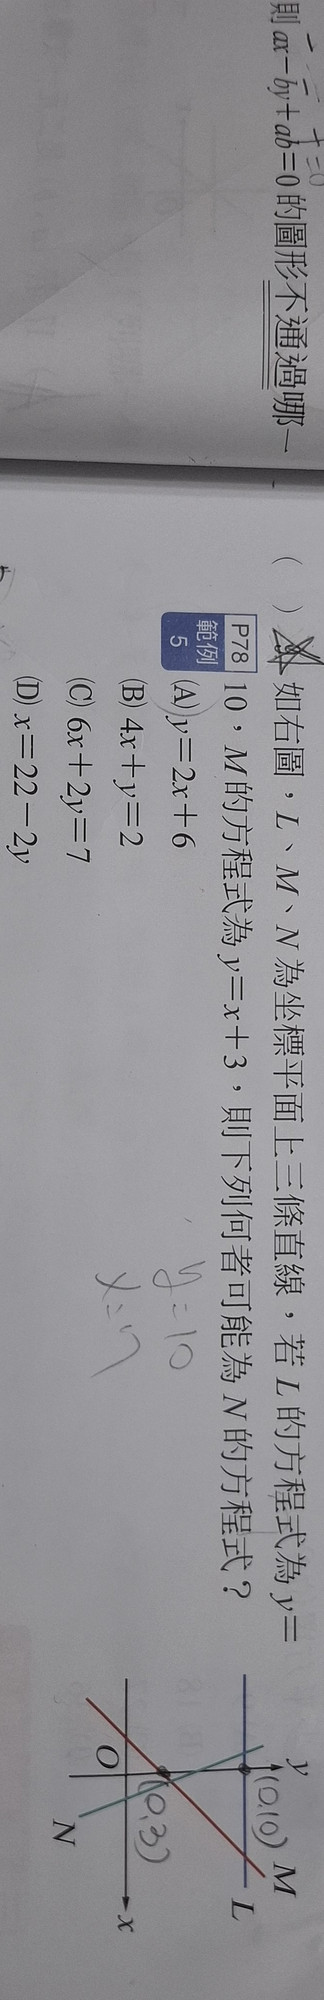 則 ax－by＋ab＝0 的圖形不通過哪一
( ) 如右圖，L、M、N 為坐標平面上三條直線，若 L 的方程式為 y＝
P78
範例
5
10，M 的方程式為 y＝x＋3，則下列何者可能為 N 的方程式？
(A) y＝2x＋6
(B) 4x＋y＝2
(C) 6x＋2y＝7
(D) x＝22－2y
y=10
x=7
y
(0,10)
M
L
(0,3)
O
x
N